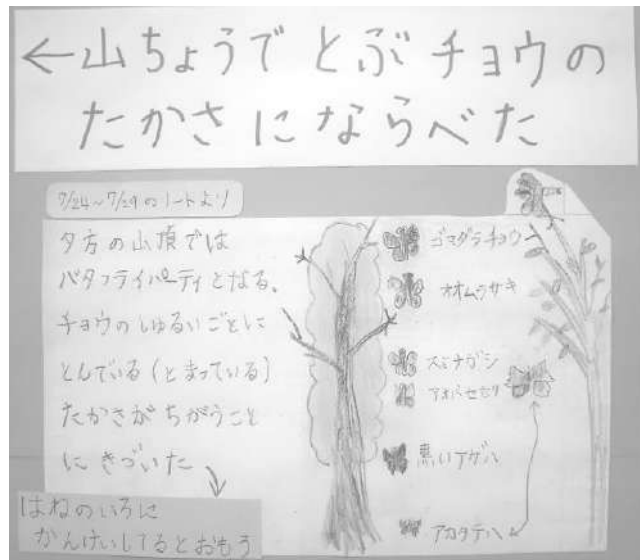 ←山ちょうでとぶチョウの
たかさにならべた
7/24〜7/29のノートより
夕方の山頂では
バタフライパーティとなる。
チョウのしゅるいごとに
とんでいる(とまっている)
たかさがちがうこと
にきづいた
はねのいろに
かんけいしてるとおもう
ゴマダラチョウ
オオムラサキ
スミナガシ
アオバセセリ
黒いアゲハ
アカタテハ